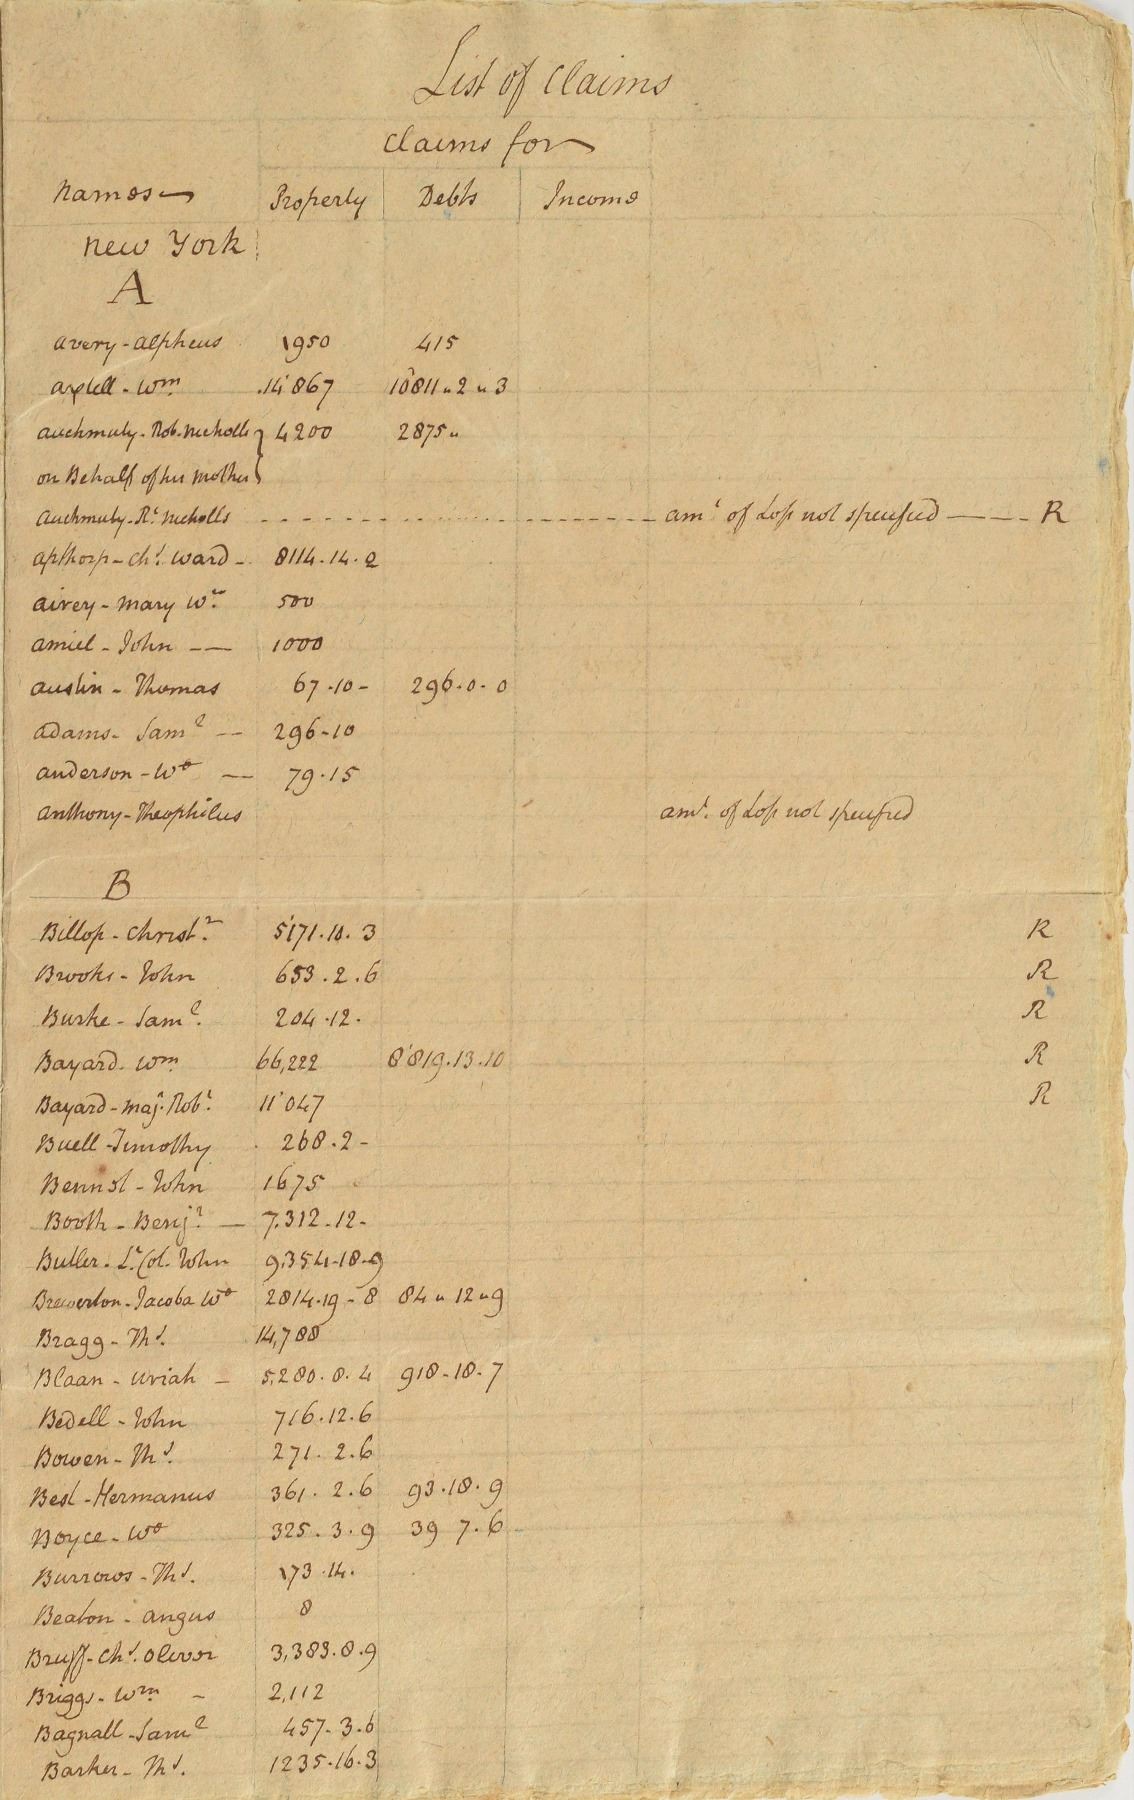 List of Claims
Claims for
Names Property Debts Income
New York
A
Avery - Alpheus 1950 415
Axtell - Wm 14'867 10'811 " 2 " 3
Auchmuty - Rob. Nicholls } 4200 2875 "
on Behalf of his Mother }
Auchmuty - Rt. Nicholls - - - - - - - - - - - - amt of Loss not specified ——— R
Apthorp - Chs. Ward - 8114 . 14 . 2
Airey - Mary Wo. 500
Amiel - John —— 1000
Austin - Thomas 67 . 10 - 296 . 0 - 0
Adams - Saml —— 296 - 10
Anderson - Wo —— 79 . 15
Anthony - Theophilus amt. of Loss not specified
B
Billop - Christr. 5'171 . 10 . 3 R
Brooks - John 653 . 2 . 6 R
Burke - Saml. 204 . 12 . R
Bayard - Wm 66,222 8'819 . 13 . 10 R
Bayard - Maj. Robt. 11'047 R
Buell - Timothy 268 . 2 -
Bennet - John 1675
Booth - Benjn. — 7,312 - 12 -
Butler - Lt. Col. John 9,354 - 18 - 9
Brewerton - Jacoba Wo 2814 - 19 - 8 84 " 12 " 9
Bragg - Ths. 14,788
Blaan - Uriah — 5,280 . 8 . 4 918 - 18 - 7
Bedell - John 716 . 12 . 6
Bowen - Ths. 271 . 2 . 6
Best - Hermanus 361 . 2 . 6 93 . 18 . 9
Boyce - Wo 325 . 3 . 9 39 7 . 6
Burrows - Ths. 173 . 14 .
Beaton - Angus 8
Bruff - Chs. Oliver 3,383 . 8 . 9
Briggs - Wm. - 2,112
Bagnall - Saml 457 - 3 . 6
Barker - Ths. 1235 . 16 . 3